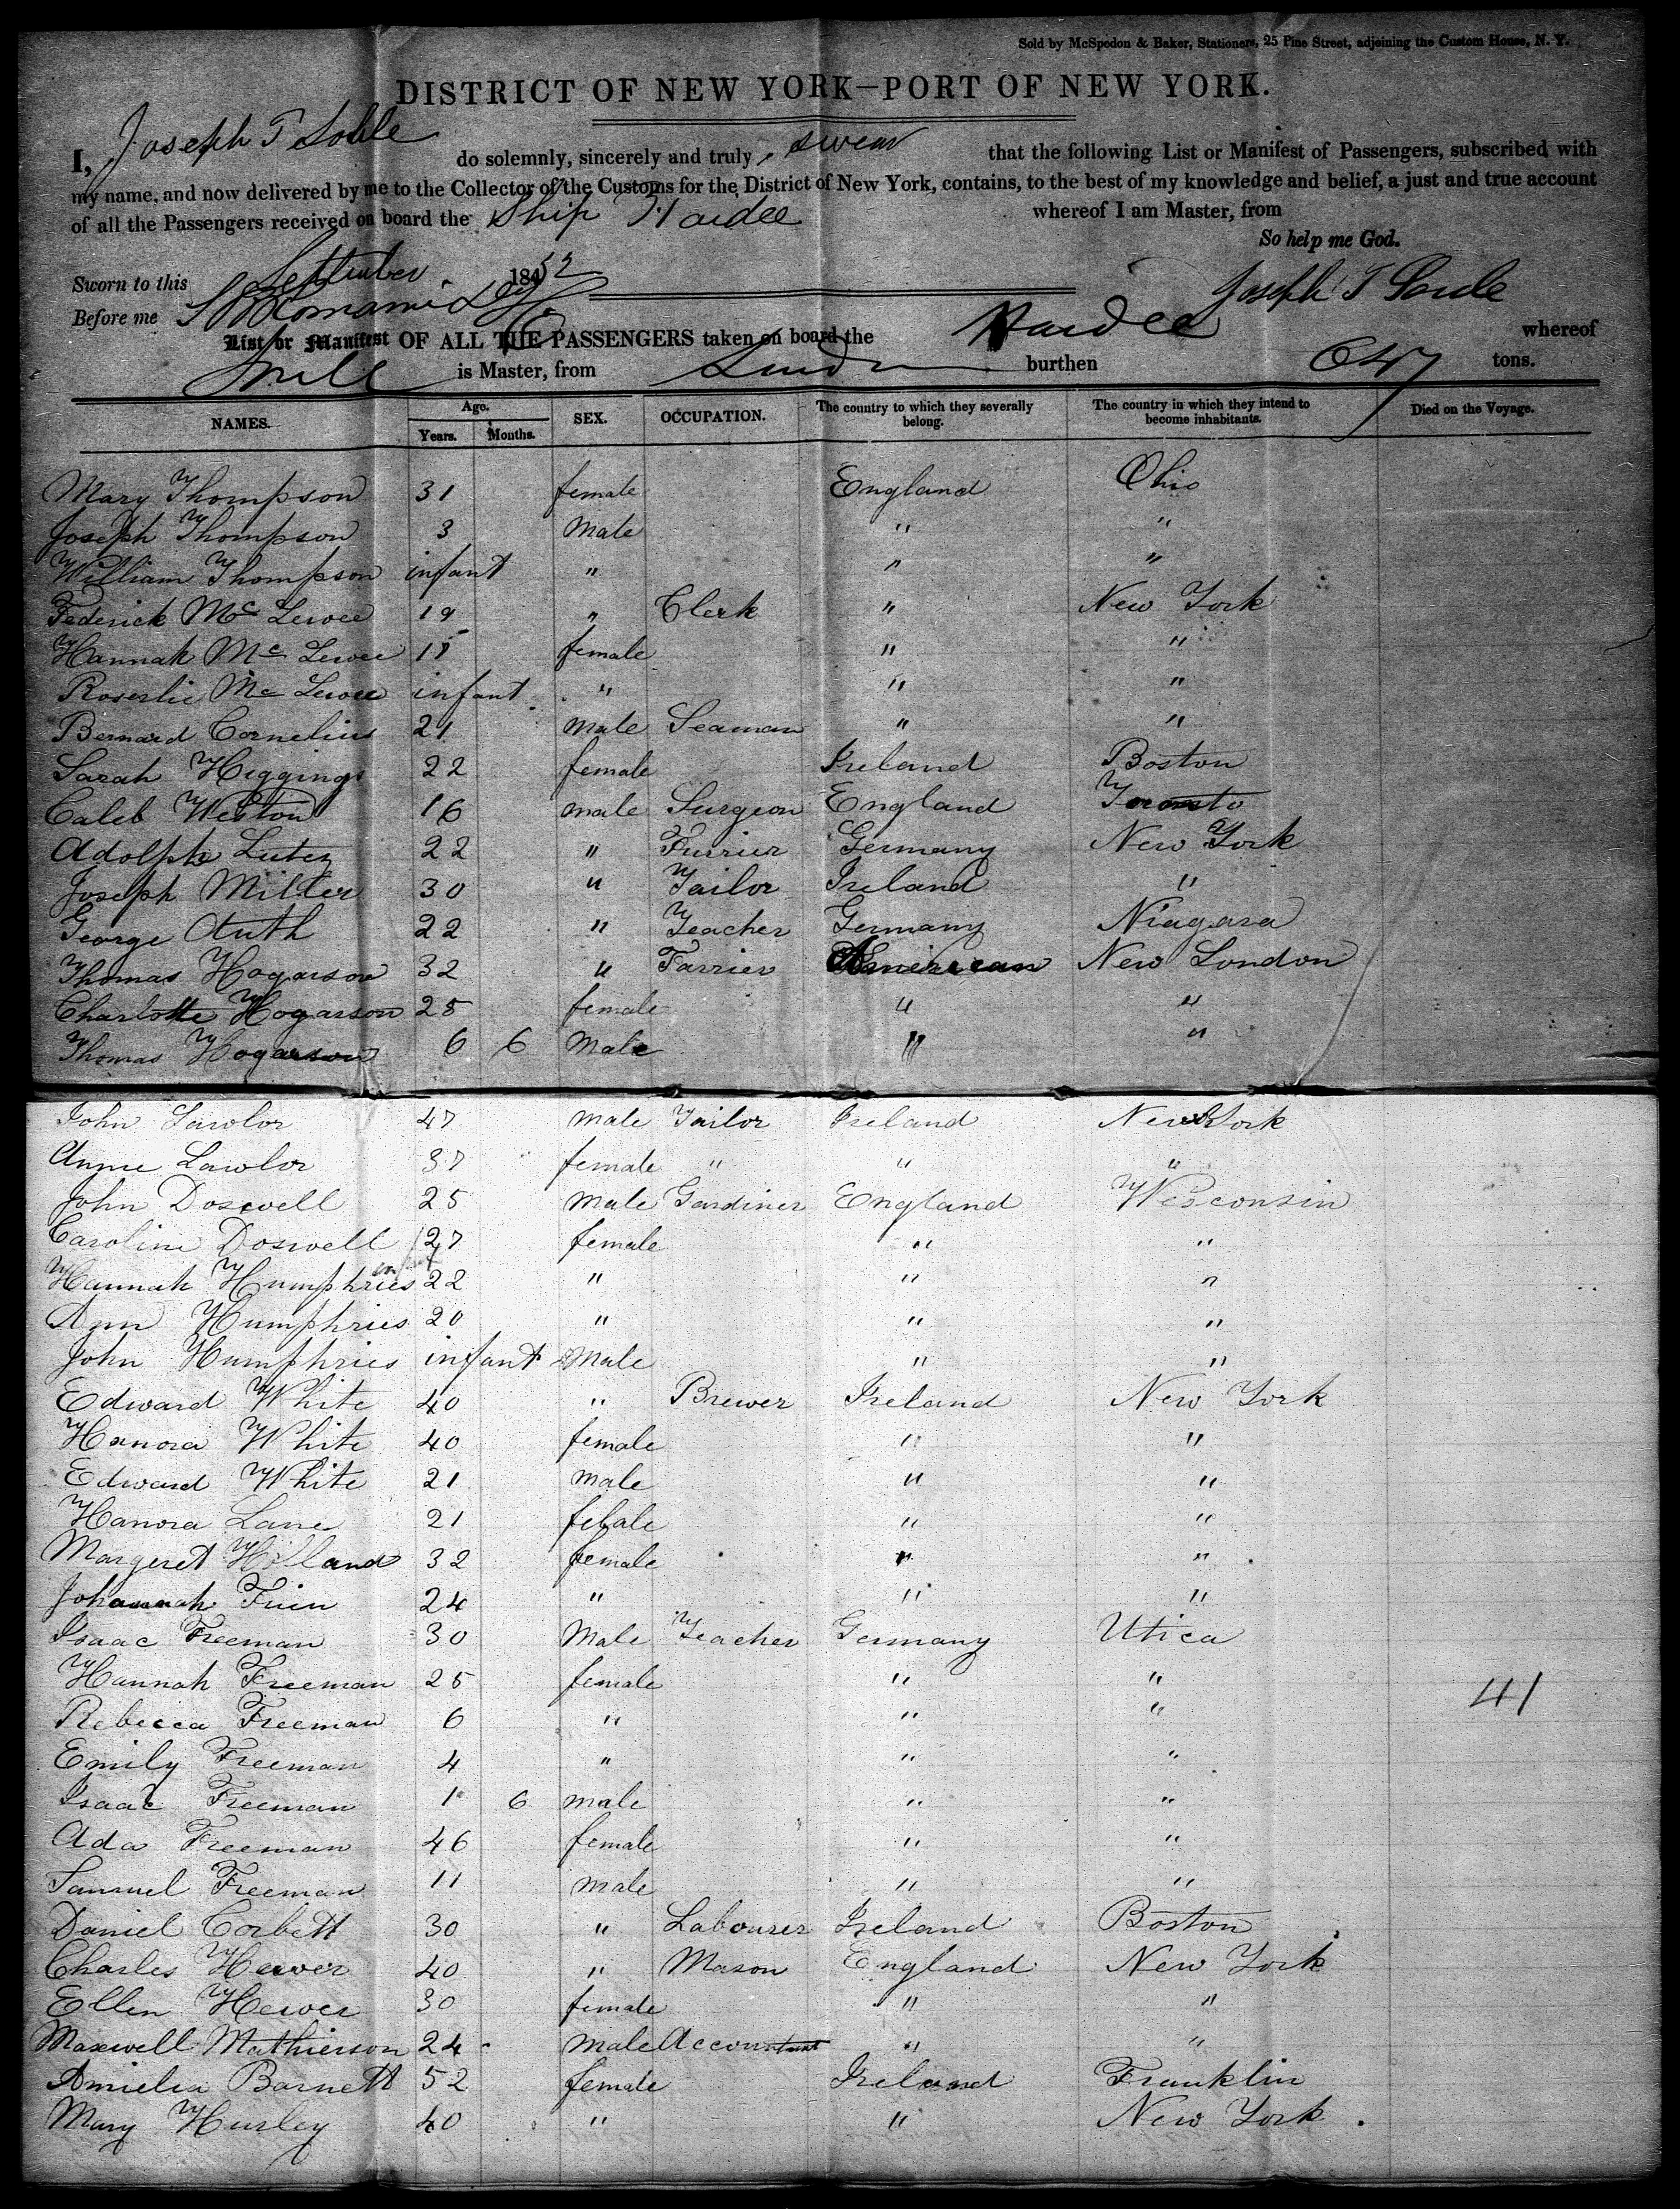 Sold by McSpedon & Baker, Stationers, 25 Pine Street, adjoining the Custom House, N. Y.
DISTRICT OF NEW YORK—PORT OF NEW YORK.
I, Joseph T Soule do solemnly, sincerely and truly, swear that the following List or Manifest of Passengers, subscribed with
my name, and now delivered by me to the Collector of the Customs for the District of New York, contains, to the best of my knowledge and belief, a just and true account
of all the Passengers received on board the Ship Haidee whereof I am Master, from
So help me God.
Sworn to this September 1852
Joseph T Soule
Before me
List or Manifest OF ALL THE PASSENGERS taken on board the Haidee whereof
Soule is Master, from London burthen 647 tons.
NAMES. Age. Years. Months. SEX. OCCUPATION. The country to which they severally belong. The country in which they intend to become inhabitants. Died on the Voyage.
Mary Thompson 31 female England Ohio
Joseph Thompson 3 Male " "
William Thompson infant " " "
Federick Mc Lewee 19 " Clerk " New York
Hannah Mc Lewee female " "
Roseslie Mc Lewee infant " " "
Bernard Cornelius 21 male Seaman " "
Sarah Higgings 22 female Ireland Boston
Caleb Weston 16 male Surgeon England Toronto
Adolph Lutez 22 " Furrier Germany New York
Joseph Miller 30 " Tailor Ireland "
George Auth 22 " Teacher Germany Niagara
Thomas Hogarson 32 " Farrier American New London
Charlotte Hogarson 25 female " "
Thomas Hogarson 6 6 Male " "
John Lawlor 47 male Tailor Ireland New York
Anne Lawlor 37 female " " "
John Doswell 25 male Gardiner England Wisconsin
Caroline Doswell 27 female " "
infant
Hannah Humphries 22 " " "
Ann Humphries 20 " " "
John Humphries infant Male " "
Edward White 40 " Brewer Ireland New York
Hanora White 40 female " "
Edward White 21 male " "
Hanora Lane 21 felale " "
Margeret Holland 32 female " "
Johannah Finn 24 " " "
Isaac Freeman 30 Male Teacher Germany Utica
Hannah Freeman 25 female " "
41
Rebecca Freeman 6 " " "
Emily Freeman 4 " " "
Isaac Freeman 1 6 male " "
Ada Freeman 46 female " "
Samuel Freeman 11 male " "
Daniel Corbett 30 " Labourer Ireland Boston
Charles Hewer 40 " Mason England New York
Ellen Hewer 30 female " "
Maxwell Mathierson 24 male Accountant " "
Amielia Barnett 52 female Ireland Franklin
Mary Hurley 40 " " New York.